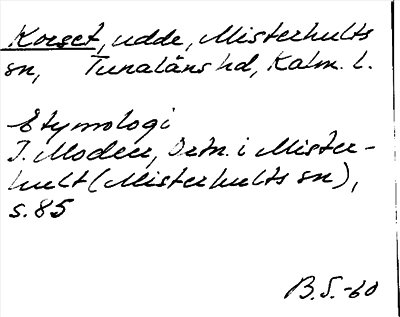 Korset, udde, Misterhults
sn, Tunaläns hd, Kalm. l.
Etymologi
I. Modéer, Ortn. i Mister-
hult (Misterhults sn),
s. 85
B.S.-60